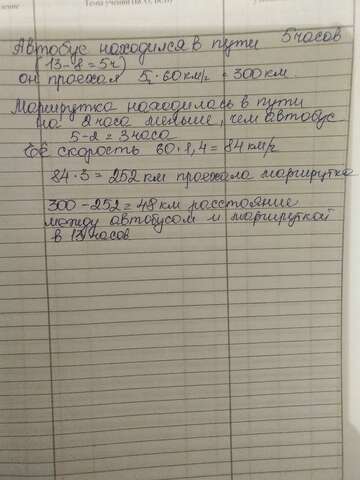 Тема учения (на АУ, ВСУ)
Автобус находился в пути 5 часов
(13-8=5ч)
он проехал 5·60км/ч = 300 км.
Маршрутка находилась в пути
на 2 часа меньше, чем автобус
5-2=3 часа
Её скорость 60·1,4=84 км/ч
84·3=252 км проехала маршрутка
300-252=48 км расстояние
между автобусом и маршруткой
в 13 часов